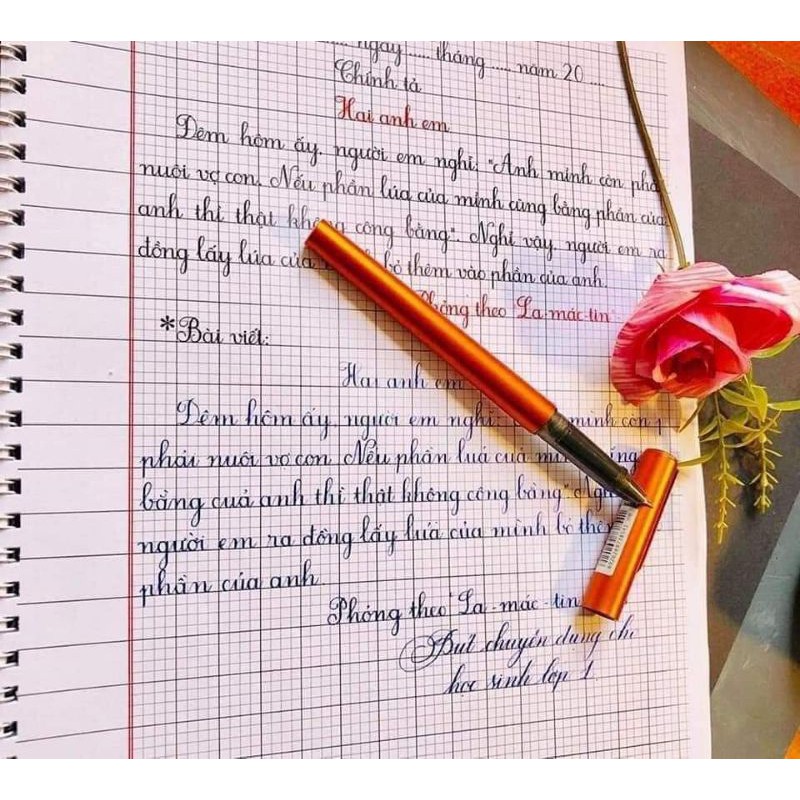 ngày ..... tháng ..... năm 20 ....
Chính tả
Hai anh em
Đêm hôm ấy, người em nghĩ: "Anh mình còn phả
nuôi vợ con. Nếu phần lúa của mình cũng bằng phần của
anh thì thật không công bằng". Nghĩ vậy, người em ra
đồng lấy lúa của bỏ thêm vào phần của anh.
Phỏng theo La-mác-tin
*Bài viết:
Hai anh em
Đêm hôm ấy, người em nghĩ: mình còn
phải nuôi vợ con. Nếu phần luá cuả
bằng cuả anh thì thật không công bằng".
người em ra đồng lấy luá của mình bỏ
phần của anh.
Phỏng theo La-mác-tin
Bút chuyên dùng
học sinh lớp 1